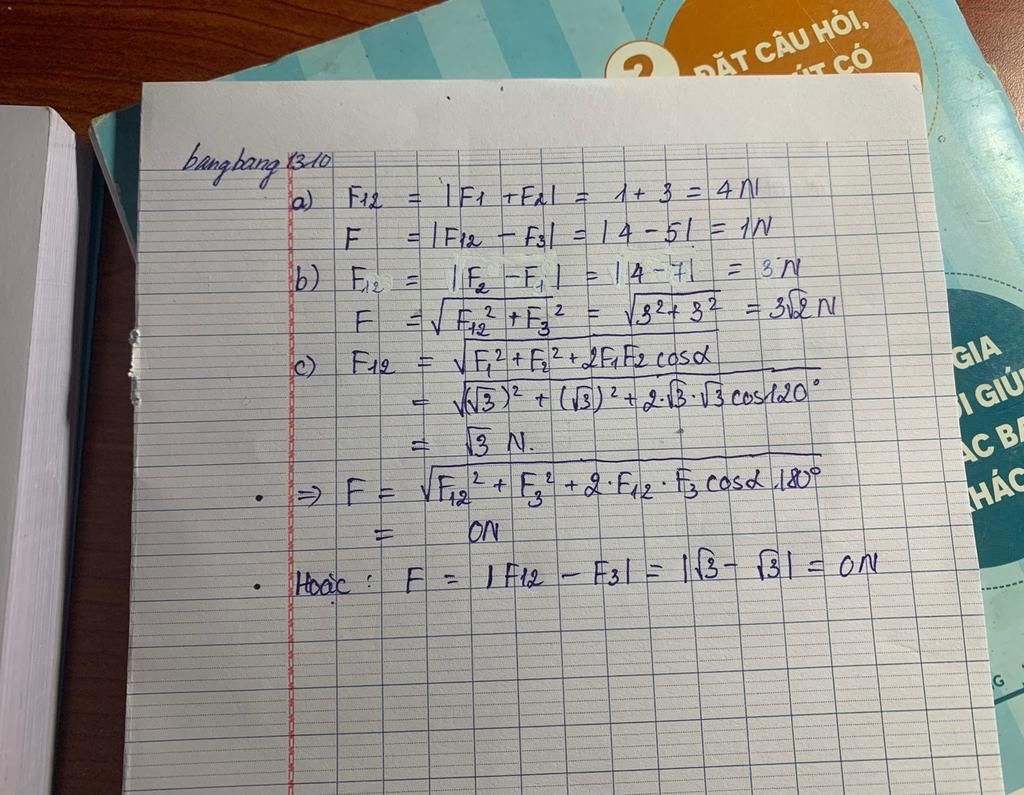 2
ĐẶT CÂU HỎI,
ÚT CÓ
bangbang 1310
a) F12 = |F1 + F2| = 1 + 3 = 4N
F = |F12 - F3| = |4 - 5| = 1N
b) F12 = |F2 - F1| = |4 - 7| = 3N
F = √(F12² + F3²) = √(3² + 3²) = 3√2 N
c) F12 = √(F1² + F2² + 2F1F2 cosα)
= √((√3)² + (√3)² + 2·√3·√3 cos120°)
= √3 N.
• ⇒ F = √(F12² + F3² + 2·F12·F3 cosα 180°)
= 0N
• Hoặc: F = |F12 - F3| = |√3 - √3| = 0N
GIA
I GIÚ
ÁC BẠ
KHÁC